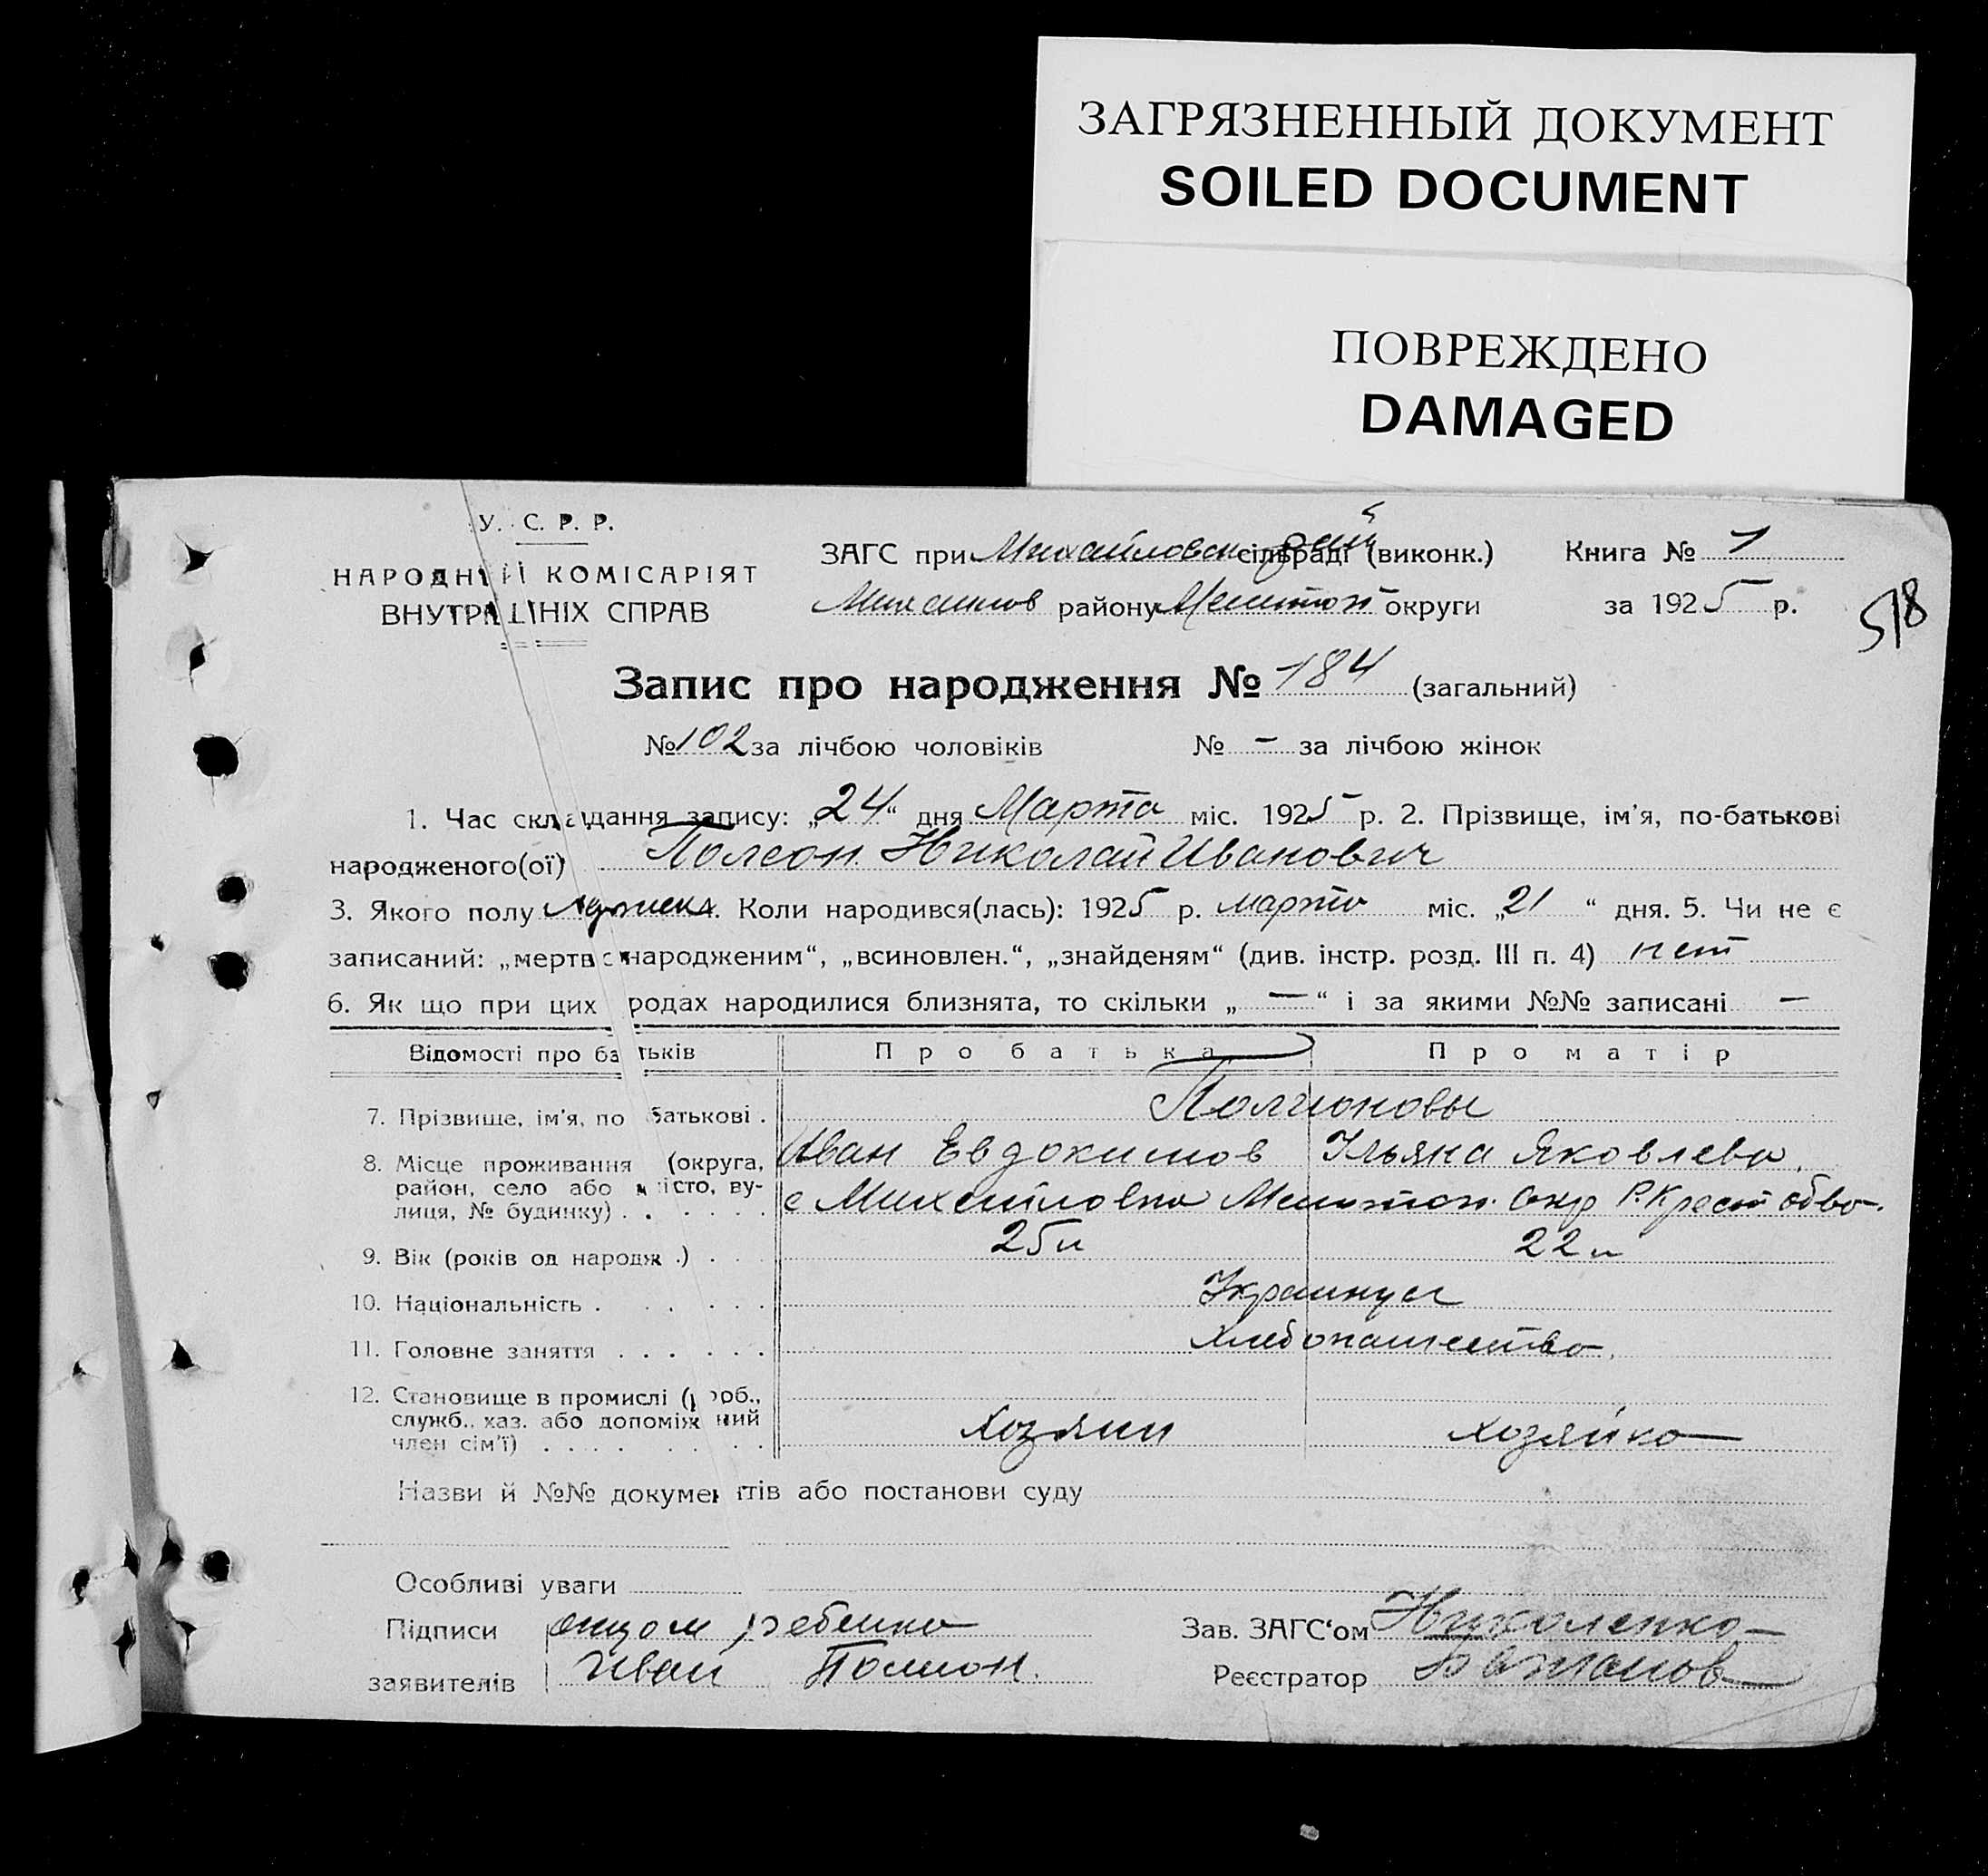 ЗАГРЯЗНЕННЫЙ ДОКУМЕНТ
SOILED DOCUMENT
ПОВРЕЖДЕНО
DAMAGED
У. С. Р. Р.
НАРОДНИЙ КОМІСАРІЯТ
ВНУТРІШНІХ СПРАВ
ЗАГС при Михайловск сільраді (виконк.) Книга № 1
Михайлов району Мелитоп округи за 1925 р.
518
Запис про народження № 184 (загальний)
№ 102 за лічбою чоловіків № - за лічбою жінок
1. Час складання запису: „24“ дня Марта міс. 1925 р. 2. Прізвище, ім'я, по-батькові
народженого(ої) Николай Иванович
3. Якого полу Коли народився(лась): 1925 р. марта міс. „21“ дня. 5. Чи не є
записаний: „мертвонародженим“, „всиновлен.“, „знайденям“ (див. інстр. розд. III п. 4) нет
6. Як що при цих родах народилися близнята, то скільки „ — “ і за якими №№ записані —
Відомості про батьків Про батька Про матір
7. Прізвище, ім'я, по батькові .
Иван Евдокимов Ульяна Яковлева.
8. Місце проживання (округа,
район, село або місто, ву-
лиця, № будинку) . . . . . . с Михайловка Мелитоп. Окр Р.Крест обво.
9. Вік (років од народж.) . . . 25 л 22 л
10. Національність . . . . . . Украинцы
11. Головне заняття . . . . . . Хлебопашество.
12. Становище в промислі (роб.,
служб., хаз. або допоміжний
член сім'ї) . . . . . . . хозяин хозяйка
Назви й №№ документів або постанови суду
Особливі уваги
Підписи отцом ребенка Зав. ЗАГС'ом Николенко
заявителів Иван Реєстратор